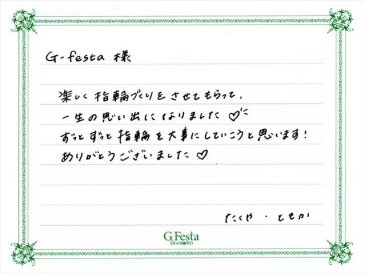 G-festa 様
楽しく指輪づくりをさせてもらって、
一生の思い出になりました♡
ずっとずっと指輪を大事にしていこうと思います!
ありがとうございました♡
たくや・ともか
G.Festa
DIAMOND